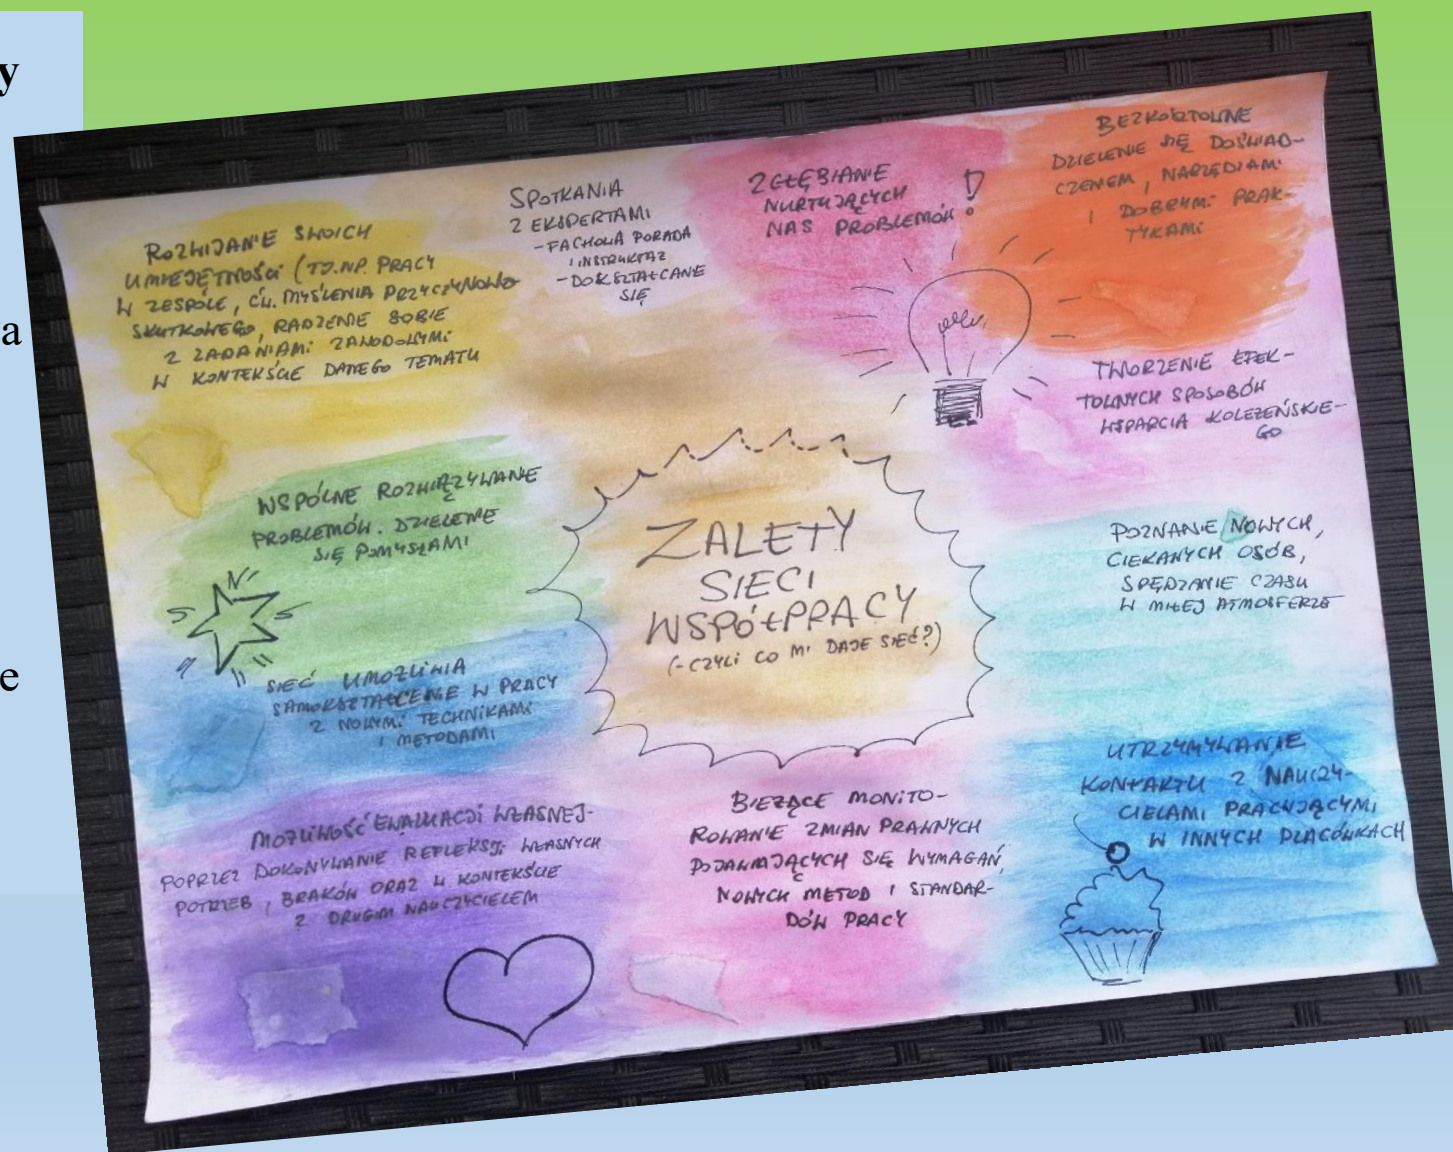 y
a
e
ROZWIJANIE SWOICH
UMIEJĘTNOŚCI (TJ. NP. PRACY
W ZESPOLE, ĆW. MYŚLENIA PRZYCZYNOWO
SKUTKOWEGO, RADZENIE SOBIE
Z ZADANIAMI ZAWODOWYMI
W KONTEKŚCIE DANEGO TEMATU
SPOTKANIA
Z EKSPERTAMI
- FACHOWA PORADA
I INSTRUKTAŻ
- DOKSZTAŁCANIE
SIĘ
ZGŁĘBIANIE
NURTUJĄCYCH
NAS PROBLEMÓW!
BEZKOSZTOWNE
DZIELENIE SIĘ DOŚWIAD-
CZENIEM, NARZĘDZIAMI
I DOBRYMI PRAK-
TYKAMI
TWORZENIE EFEK-
TOWNYCH SPOSOBÓW
WSPARCIA KOLEŻEŃSKIE-
GO
WSPÓLNE ROZWIĄZYWANIE
PROBLEMÓW. DZIELENIE
SIĘ POMYSŁAMI
ZALETY
SIECI
WSPÓŁPRACY
(- CZYLI CO MI DAJE SIEĆ?)
POZNANIE NOWYCH,
CIEKAWYCH OSÓB,
SPĘDZANIE CZASU
W MIŁEJ ATMOSFERZE
SIEĆ UMOŻLIWIA
SAMOKSZTAŁCENIE W PRACY
Z NOWYMI TECHNIKAMI
I METODAMI
UTRZYMYWANIE
KONTAKTU Z NAUCZY-
CIELAMI PRACUJĄCYMI
W INNYCH PLACÓWKACH
MOŻLIWOŚĆ EWALUACJI WŁASNEJ -
POPRZEZ DOKONYWANIE REFLEKSJI WŁASNYCH
POTRZEB, BRAKÓW ORAZ W KONTEKŚCIE
Z DRUGIM NAUCZYCIELEM
BIEŻĄCE MONITO-
ROWANIE ZMIAN PRAWNYCH
POJAWIAJĄCYCH SIĘ WYMAGAŃ,
NOWYCH METOD I STANDAR-
DÓW PRACY